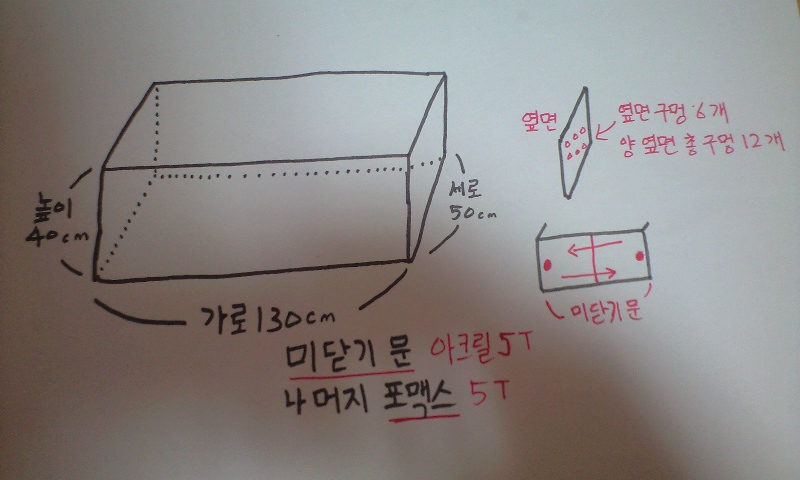 높이
40cm
세로
50cm
가로 130cm
옆면
옆면 구멍 6개
양 옆면 총 구멍 12개
미닫기 문
미닫기 문 아크릴 5T
나머지 포맥스 5T